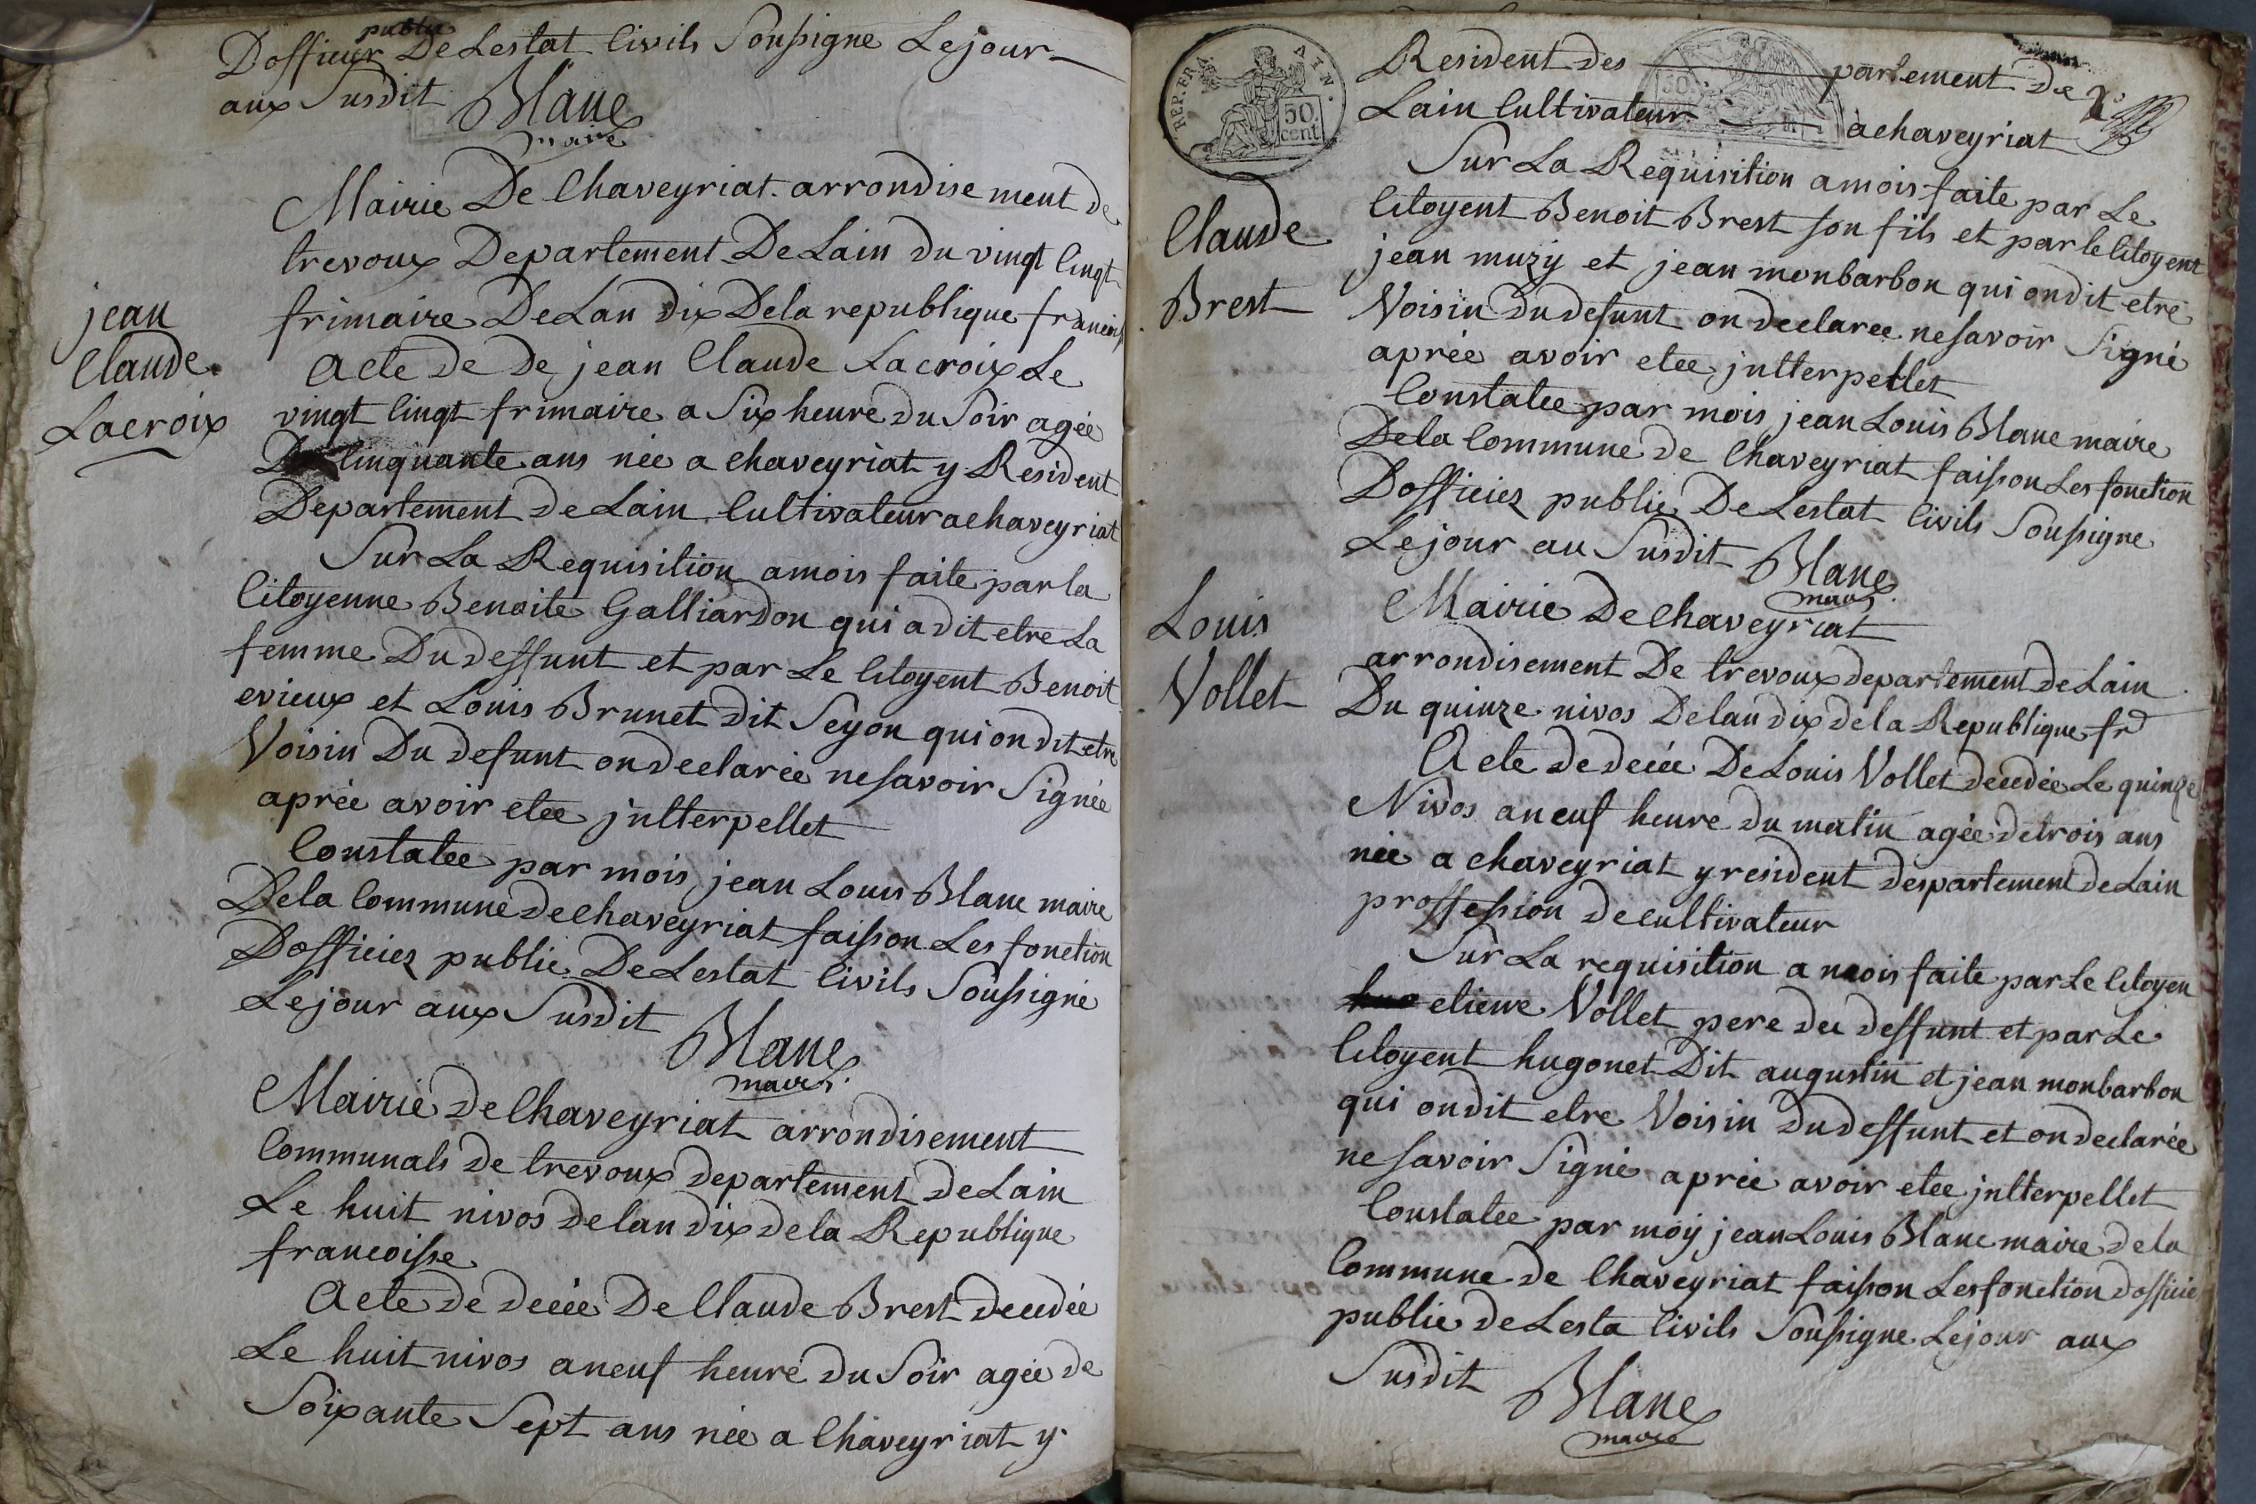 Dofficier public De Lestat Civils Soussigne Le jour
aux Susdit Blanc
maire
Mairie De Chaveyriat arrondisement de
trevoux Departement De Lain du vingt Cinqt
frimaire De Lan dix Dela republique
jean
Claude
Lacroix
Acte De De jean Claude Lacroix Le
vingt Cinqt frimaire a Six heure du Soir agée
De Cinquante ans née a chaveyriat y Resident
Departement De Lain Cultivateur a chaveyriat
Sur La Requisition a mois faite par la
Citoyenne Benoite Galliardon qui a dit etre La
femme Du deffunt et par Le Citoyent Benoit
evieux et Louis Brunet dit Seyon qui on dit etre
Voisin Du defunt on declarée ne savoir Signée
aprée avoir etee jnterpellet
Constatee par mois jean Louis Blanc maire
Dela Commune de Chaveyriat faisson Les fonction
Dofficiez public De Lestat Civils Soussigné
Le jour aux Susdit
Blanc
maire
Mairie de Chaveyriat arrondisement
Communals de trevoux departement de Lain
Le huit nivos de lan dix de la Republique
francoisse
Acte de decée De Claude Brest decedée
Le huit nivos a neuf heure du Soir agée de
Soixante Sept ans née a Chaveyriat y
REP. FRA. 50 cent
50
Resident des partement de
Lain Cultivateur a chaveyriat
Sur La Requisition a mois faite par Le
Claude
Brest
Citoyent Benoit Brest son fils et par le Citoyent
jean muzy et jean monbarbon qui on dit etre
Voisin du defunt on declaree ne savoir Signé
aprée avoir etee jntterpellet
Constatee par mois jean Louis Blanc maire
Dela Commune de Chaveyriat faisson Les fonction
Dofficiez public De Lestat Civils Soussigne
Le jour au Susdit Blanc
maire
Louis
Vollet
Mairie De Chaveyriat
arrondisement De trevoux departement de Lain
Du quinze nivos De lan dix de la Republique fr
Acte de decée De Louis Vollet decedée Le quinze
Nivos a neuf heure du matin agée de trois ans
née a chaveyriat y resident despartement de Lain
proffession de cultivateur
Sur La requisition a mois faite par Le Citoyen
etiene Vollet pere du deffunt et par Le
Citoyent hugonet Dit augustin et jean monbarbon
qui on dit etre Voisin du deffunt et on declarée
ne savoir Signé aprée avoir etee jntterpellet
Constatee par moÿ jean Louis Blanc maire de la
Commune de Chaveyriat faisson Les fonction dofficie
public de Lesta Civils Soussigne Le jour aux
Susdit
Blanc
maire